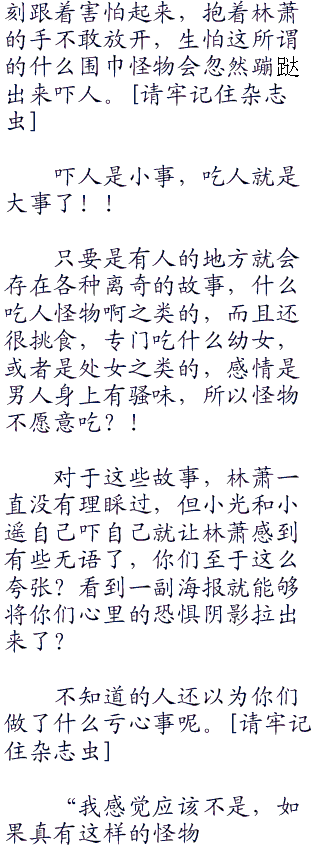 刻跟着害怕起来，抱着林萧
的手不敢放开，生怕这所谓
的什么围巾怪物会忽然蹦跶
出来吓人。[请牢记住杂志
虫]
吓人是小事，吃人就是
大事了！！
只要是有人的地方就会
存在各种离奇的故事，什么
吃人怪物啊之类的，而且还
很挑食，专门吃什么幼女，
或者是处女之类的，感情是
男人身上有骚味，所以怪物
不愿意吃？！
对于这些故事，林萧一
直没有理睬过，但小光和小
遥自己吓自己就让林萧感到
有些无语了，你们至于这么
夸张？看到一副海报就能够
将你们心里的恐惧阴影拉出
来了？
不知道的人还以为你们
做了什么亏心事呢。[请牢记
住杂志虫]
“我感觉应该不是，如
果真有这样的怪物